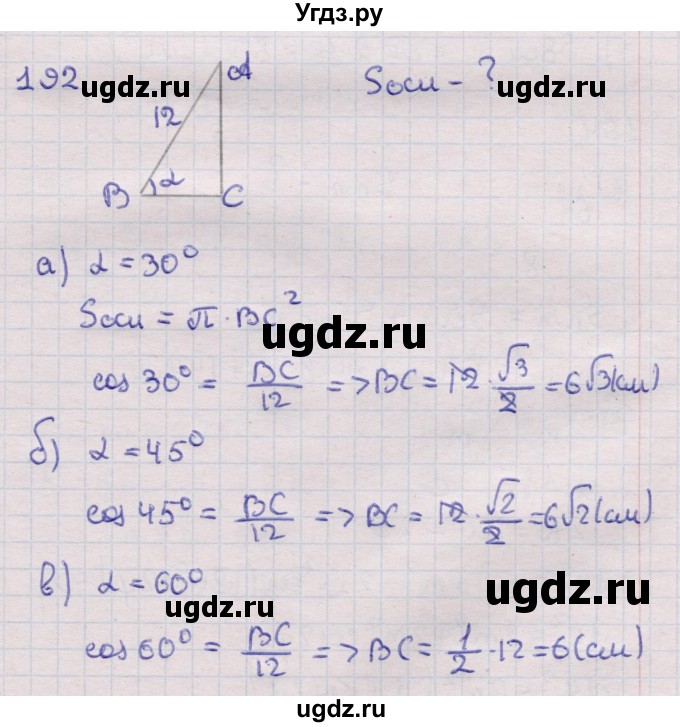 Угдз.ру
192
ugdz.ru
A
12
Sосн - ?
ugdz.ru
B α C
а) α = 30°
Sосн = π · BC²
ugdz.ru
cos 30° = BC/12 => BC = 12 · √3/2 = 6√3 (см)
б) α = 45°
cos 45° = BC/12 => BC = 12 · √2/2 = 6√2 (см)
ugdz.ru
в) α = 60°
ugdz.ru
cos 60° = BC/12 => BC = 1/2 · 12 = 6 (см)
ugdz.ru